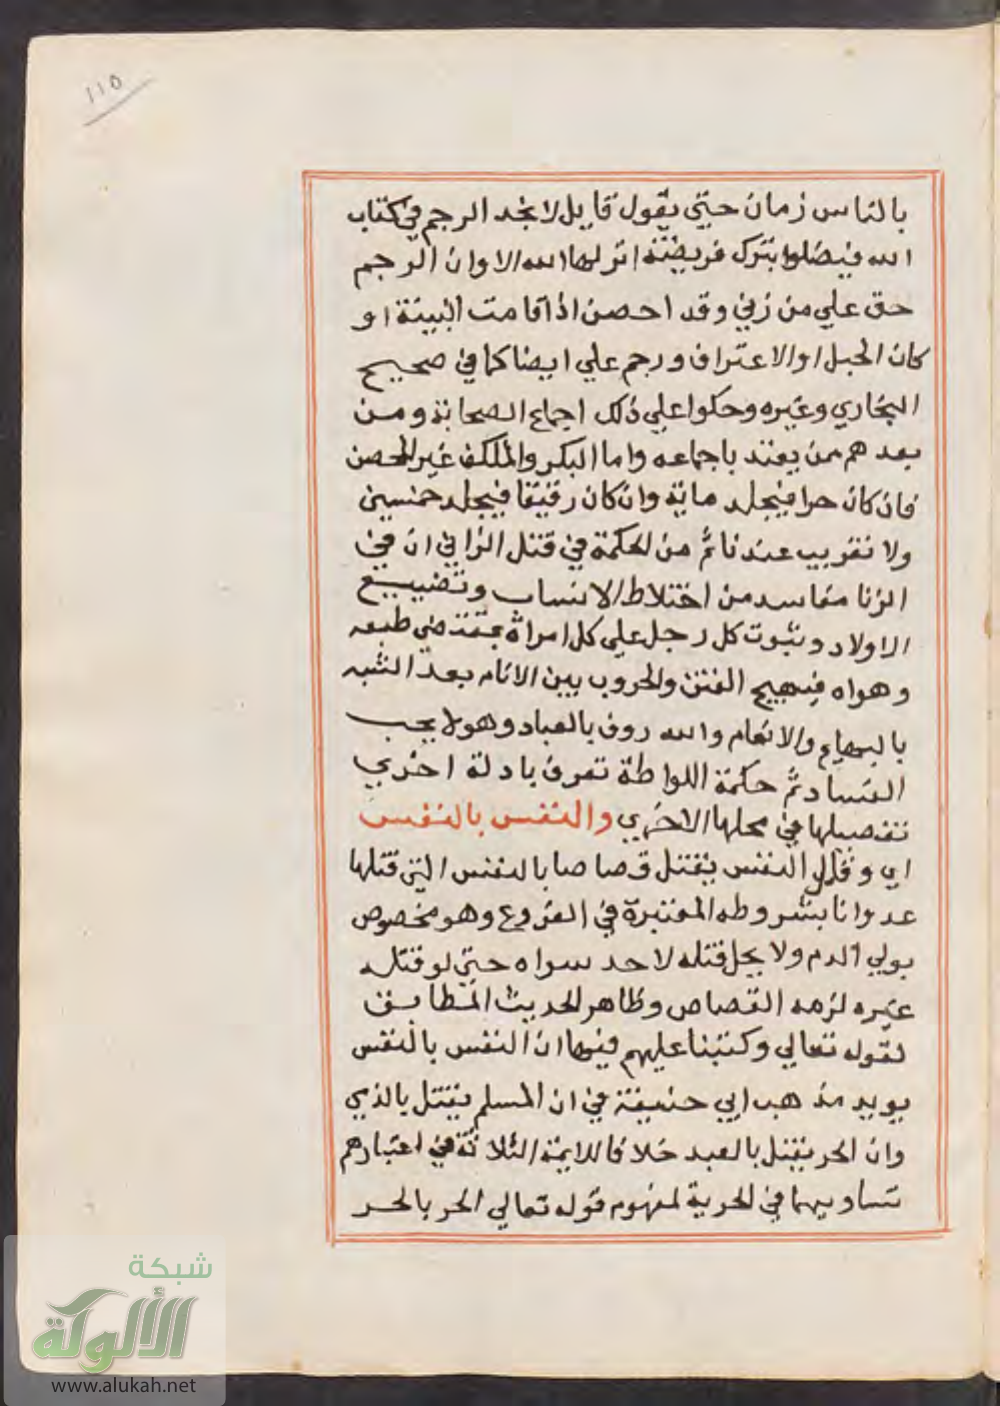 ١١٥
بالناس زمان حتي يقول قايل لا نجد الرجم في كتاب
الله فيضلوا بترك فريضة انزلها الله الا وان الرجم
حق علي من زني وقد احصن اذا قامت البينة او
كان الحبل او الاعتراف ورجم علي ايضا كما في صحيح
البخاري وغيره وحكوا علي ذلك اجماع الصحابة ومن
بعدهم ممن يعتد باجماعه واما البكر والمكلف غير المحصن
فان كان حرا فيجلد ماية وان كان رقيقا فيجلد خمسين
ولا تغريب عندنا ثم من الحكمة في قتل الزاني ان في
الزنا مفاسد من اختلاط الانساب وتضييع
الاولاد وثبوت كل رجل علي كل امراة بمقتضي طبعه
وهواه فيهيج الفتن والحروب بين الانام بعد التشبه
بالبهايم والانعام والله روف بالعباد وهو لا يحب
الفساد ثم حكمة اللواطة تعرف بادلة اخري
تفصيلها في محلها الاخري والنفس بالنفس
اي وقاتل النفس يقتل قصاصا بالنفس التي قتلها
عدوانا بشروطه المعتبرة في الفروع وهو مخصوص
بولي الدم ولا يحل قتله لاحد سواه حتي لو قتله
غيره لزمه القصاص وظاهر الحديث المطابق
لقوله تعالي وكتبنا عليهم فيها ان النفس بالنفس
يويد مذهب ابي حنيفة في ان المسلم يقتل بالذمي
وان الحر يقتل بالعبد خلافا للايمة الثلاثة في اعتبارهم
تساويهما في الحرية لمفهوم قوله تعالي الحر بالحر
شبكة
الألوكة
www.alukah.net